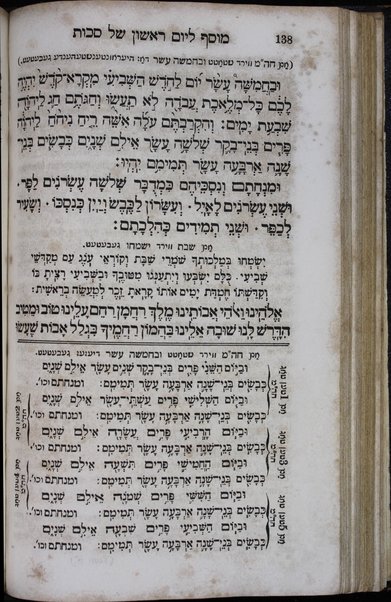 138 מוסף ליום ראשון של סכות
(מָן חה״מ ווירד סטאַטט ובחמשה עשר
וּבַחֲמִשָּׁה עָשָׂר יוֹם לַחֹדֶשׁ הַשְּׁבִיעִי מִקְרָא־קֹדֶשׁ יִהְיֶה
לָכֶם כָּל־מְלֶאכֶת עֲבֹדָה לֹא תַעֲשׂוּ וְחַגֹּתֶם חַג לַיהוָֹה
שִׁבְעַת יָמִים: וְהִקְרַבְתֶּם עֹלָה אִשֵּׁה רֵיחַ נִיחֹחַ לַיהוָֹה
פָּרִים בְּנֵי־בָקָר שְׁלֹשָׁה עָשָׂר אֵילִם שְׁנַיִם כְּבָשִׂים בְּנֵי
שָׁנָה אַרְבָּעָה עָשָׂר תְּמִימִם יִהְיוּ:
וּמִנְחָתָם וְנִסְכֵּיהֶם כִּמְדֻבָּר שְׁלֹשָׁה עֶשְׂרֹנִים לַפָּר.
וּשְׁנֵי עֶשְׂרֹנִים לָאָיִל. וְעִשָּׂרוֹן לַכֶּבֶשׂ וְיַיִן כְּנִסְכּוֹ. וְשָׂעִיר
לְכַפֵּר. וּשְׁנֵי תְמִידִים כְּהִלְכָתָם:
מָן שבת ווירד ישמחו געבעטעט.
יִשְׂמְחוּ בְמַלְכוּתְךָ שׁוֹמְרֵי שַׁבָּת וְקוֹרְאֵי עֹנֶג עַם מְקַדְּשֵׁי
שְׁבִיעִי. כֻּלָּם יִשְׂבְּעוּ וְיִתְעַנְּגוּ מִטּוּבֶךָ וּבַשְּׁבִיעִי רָצִיתָ בּוֹ
וְקִדַּשְׁתּוֹ חֶמְדַּת יָמִים אוֹתוֹ קָרָאתָ זֵכֶר לְמַעֲשֵׂה בְרֵאשִׁית:
אֱלֹהֵינוּ וֵאלֹהֵי אֲבוֹתֵינוּ מֶלֶךְ רַחֲמָן רַחֵם עָלֵינוּ טוֹב וּמֵטִיב
הִדָּרֶשׁ לָנוּ שׁוּבָה אֵלֵינוּ בַּהֲמוֹן רַחֲמֶיךָ בִּגְלַל אָבוֹת שֶׁעָשׂוּ
מָן חה״מ ווירד סטאַטט ובחמשה עשר דיעזעס געבעטעט.
וּבַיּוֹם הַשֵּׁנִי פָּרִים בְּנֵי־בָקָר שְׁנֵים עָשָׂר אֵילִם שְׁנָיִם
כְּבָשִׂים בְּנֵי־שָׁנָה אַרְבָּעָה עָשָׂר תְּמִימִם: ומנחתם וכו׳.
וּבַיּוֹם הַשְּׁלִישִׁי פָּרִים עַשְׁתֵּי־עָשָׂר אֵילִם שְׁנָיִם
כְּבָשִׂים בְּנֵי־שָׁנָה אַרְבָּעָה עָשָׂר תְּמִימִם: ומנחתם וכו׳.
וּבַיּוֹם הָרְבִיעִי פָּרִים עֲשָׂרָה אֵילִם שְׁנָיִם
כְּבָשִׂים בְּנֵי־שָׁנָה אַרְבָּעָה עָשָׂר תְּמִימִם: ומנחתם וכו׳.
וּבַיּוֹם הַחֲמִישִׁי פָּרִים תִּשְׁעָה אֵילִם שְׁנָיִם
כְּבָשִׂים בְּנֵי־שָׁנָה אַרְבָּעָה עָשָׂר תְּמִימִם: ומנחתם וכו׳.
וּבַיּוֹם הַשִּׁשִּׁי פָּרִים שְׁמֹנָה אֵילִם שְׁנָיִם
כְּבָשִׂים בְּנֵי־שָׁנָה אַרְבָּעָה עָשָׂר תְּמִימִם: ומנחתם וכו׳.
וּבַיּוֹם הַשְּׁבִיעִי פָּרִים שִׁבְעָה אֵילִם שְׁנָיִם
כְּבָשִׂים בְּנֵי־שָׁנָה אַרְבָּעָה עָשָׂר תְּמִימִם: ומנחתם וכו׳.